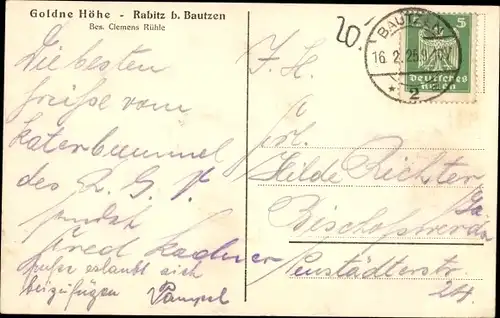 Goldne Höhe - Rabitz b. Bautzen
Bes. Clemens Rühle
20.
BAUTZEN
16.2.25.9-10V
* 2
5
Deutsches
Reich
Die besten
Grüße vom
Katerbummel
des R. G. V.
sendet
Fred Kadner
erlaubt sich
beizufügen Pampel
F. H.
Frl.
Hilde Richter
Bischofswerda
Sa.
Neustädterstr.